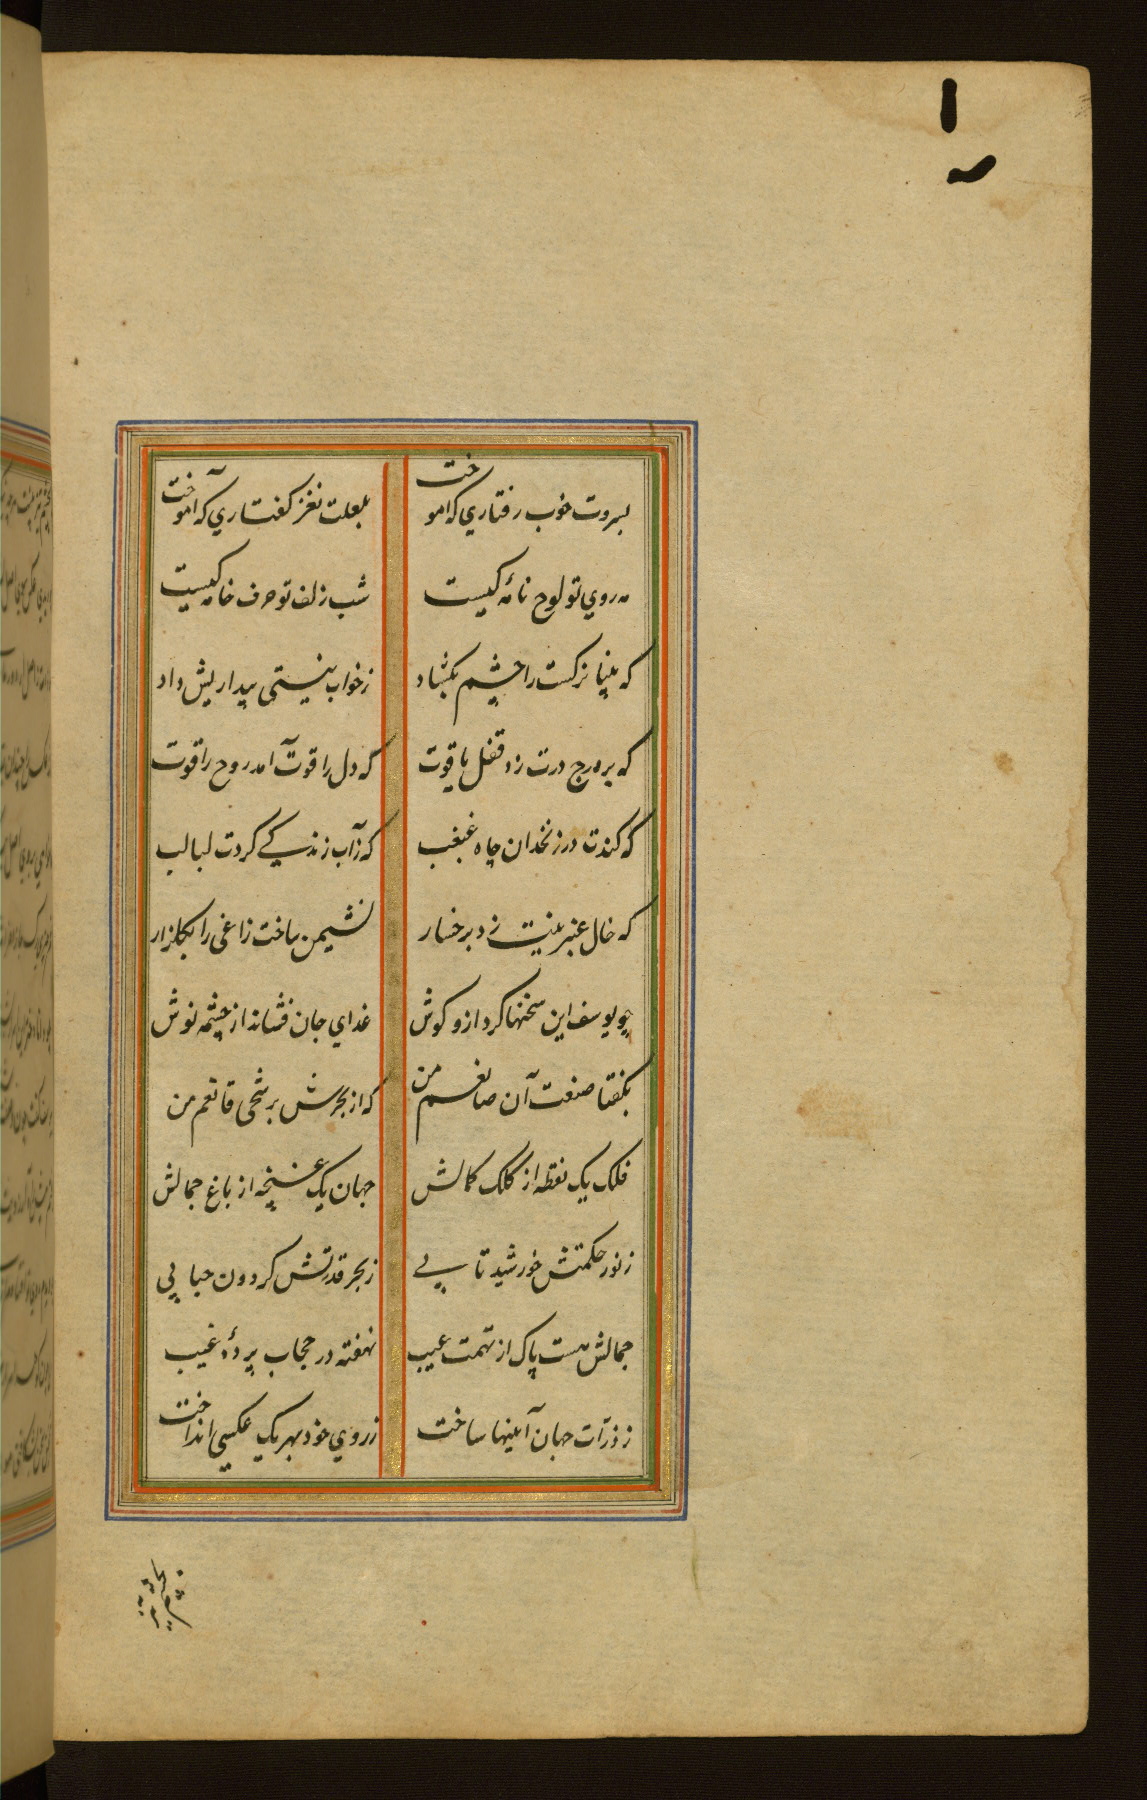 بسروت خوب رفتاري که اموخت بلعلت نغز کفتاري که آموخت
مه روي تو لوح نامهٔ کیست شب زلف تو حرف خامه کیست
که بینا نرکست را چشم بکشاد ز خواب نیستی بیداریش داد
که بر درج درت زد قفل یاقوت که دل را قوت آمد روح را قوت
که کندت در زنخدان چاه غبغب که ز آب زندکے کردت لبالب
که خال عنبرینت زد بر خسار نشیمن ساخت زاغی را بکلزار
چو یوسف این سخنها کرد ازو کوش غذاي جان فشاند از چشمه نوش
بکفتا صنعت آن صانعم من که از بحرش برشحی قانعم من
فلک یک نقطه از کلک کمالش جهان یک غنچه از باغ جمالش
ز نور حکمتش خورشید تابے ز بحر قدرتش کردون حبابی
جمالش هست پاک از تهمت عیب نهفته در حجاب پردهٔ غیب
ز ذرّات جهان آیینها ساخت ز روي خود بهر یک عکسی انداخت